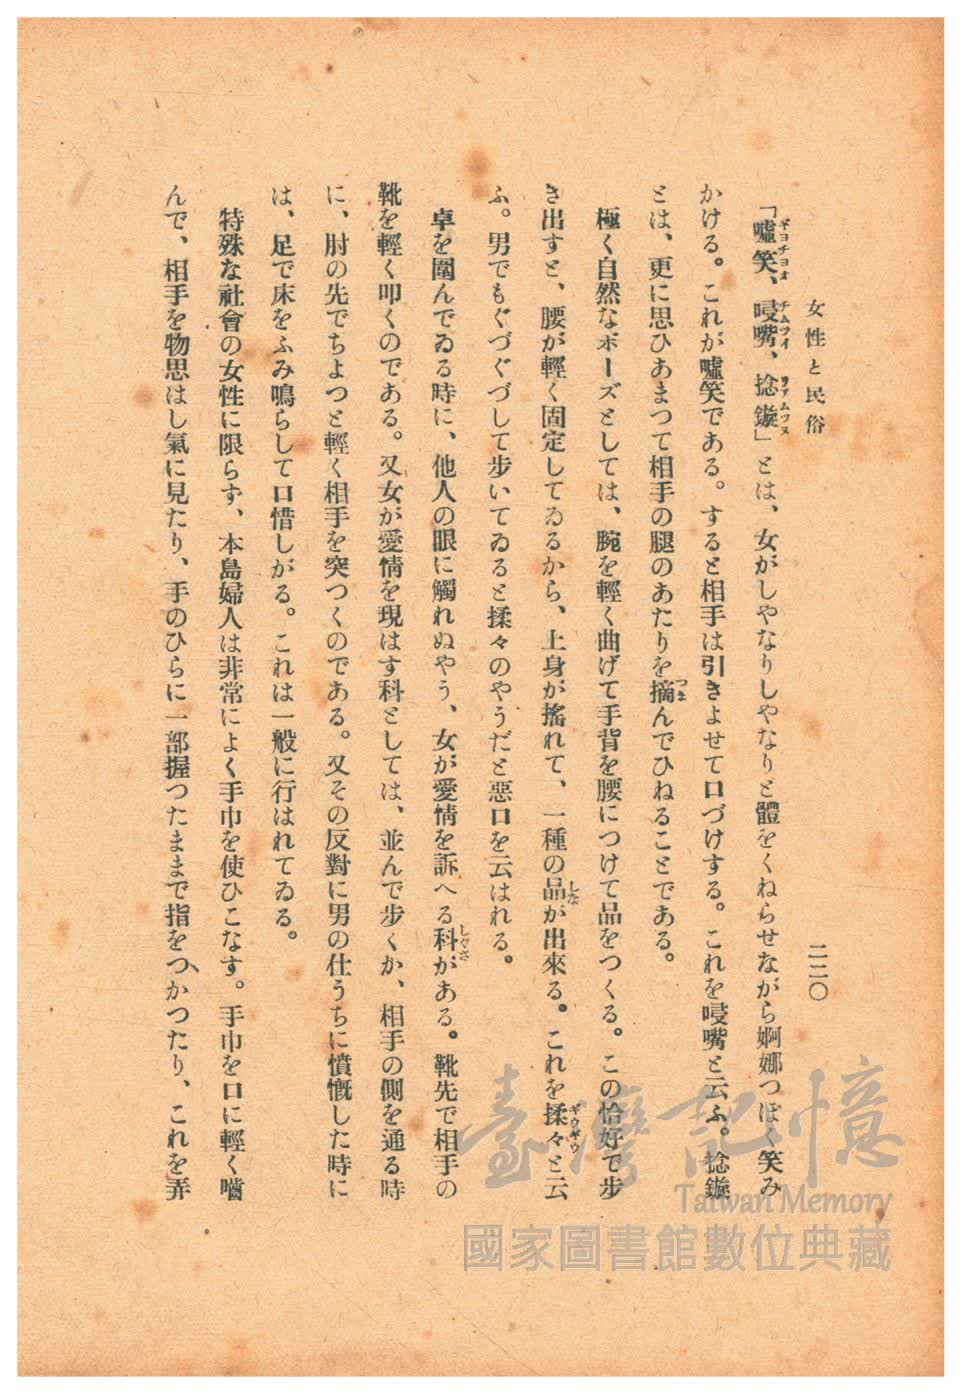 女性と民俗
二二〇
「噓笑、唚嘴、捻鏇」とは、女がしやなりしやなりと體をくねらせながら婀娜つぽく笑み
かける。これが噓笑である。すると相手は引きよせて口づけする。これを唚嘴と云ふ。捻鏇
とは、更に思ひあまつて相手の腿のあたりを摘んでひねることである。
極く自然なポーズとしては、腕を輕く曲げて手背を腰につけて品をつくる。この恰好で步
き出すと、腰が輕く固定してゐるから、上身が搖れて、一種の品が出來る。これを揉々と云
ふ。男でもぐづぐづして步いてゐると揉々のやうだと惡口を云はれる。
卓を圍んでゐる時に、他人の眼に觸れぬやう、女が愛情を訴へる科がある。靴先で相手の
靴を輕く叩くのである。又女が愛情を現はす科としては、並んで步くか、相手の側を通る時
に、肘の先でちよつと輕く相手を突つくのである。又その反對に男の仕うちに憤慨した時に
は、足で床をふみ鳴らして口惜しがる。これは一般に行はれてゐる。
特殊な社會の女性に限らず、本島婦人は非常によく手巾を使ひこなす。手巾を口に輕く嚙
んで、相手を物思はし氣に見たり、手のひらに一部握つたままで指をつかつたり、これを弄
臺灣記憶
Taiwan Memory
國家圖書館數位典藏